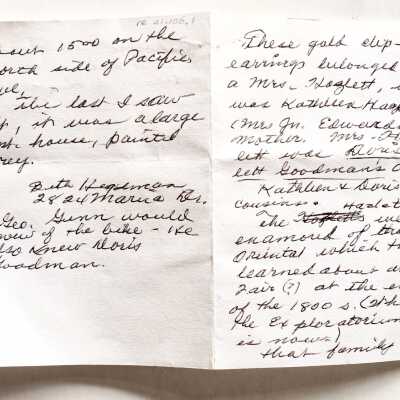 12 21.106.1
out 1500 on the
orth side of Pacific
ve,
the last I saw
it, it was a large
house, painted
rey.
Beth Hegeman
2824 Marina Dr.
Geo. Gunn would
know of the bike - He
also knew Doris
Goodman.
These gold clip-
earrings belonged
a Mrs. Hazlett,
was Kathleen Haz
(Mrs Jn. Edwards
mother. Mrs.
lett was Doris
lett Goodman's
Kathleen & Doris
cousins.
The Hazlet
enamored of
Oriental which th
learned about a
Fair (?) at the e
of the 1800s. (Wh
the Exploratorium
is now.)
that family